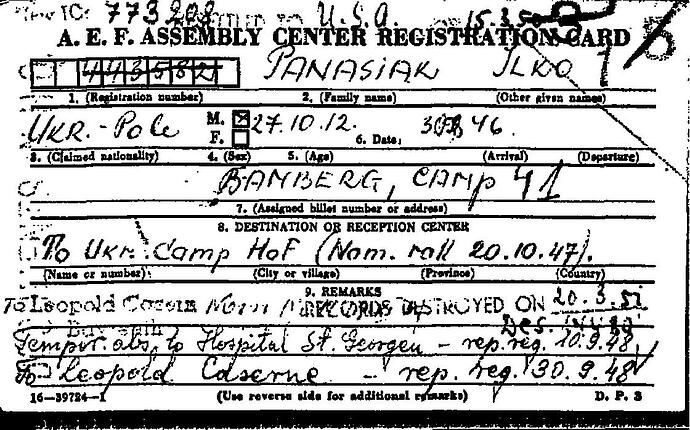 New IC: 773208 U.S.A. 15.3.50
A. E. F. ASSEMBLY CENTER REGISTRATION CARD
4435821 PANASIAK ILKO
1. (Registration number) 2. (Family name) (Other given names)
UKR.-Pole M. 27.10.12. 46.
F. 6. Date:
3. (Claimed nationality) 4. (Sex) 5. (Age) (Arrival) (Departure)
BAMBERG, CAMP 41
7. (Assigned billet number or address)
8. DESTINATION OR RECEPTION CENTER
To Ukr. Camp Hof (Nom. roll 20.10.47).
(Name or number) (City or village) (Province) (Country)
9. REMARKS
To Leopold Casern Nom RECORDS DESTROYED ON 20.3.51
Tempor. abs. to Hospital St. Georgen - rep. reg. 10.9.48
To Leopold Caserne - rep. reg. 30.9.48
16—39724—1 (Use reverse side for additional remarks) D. P. 3